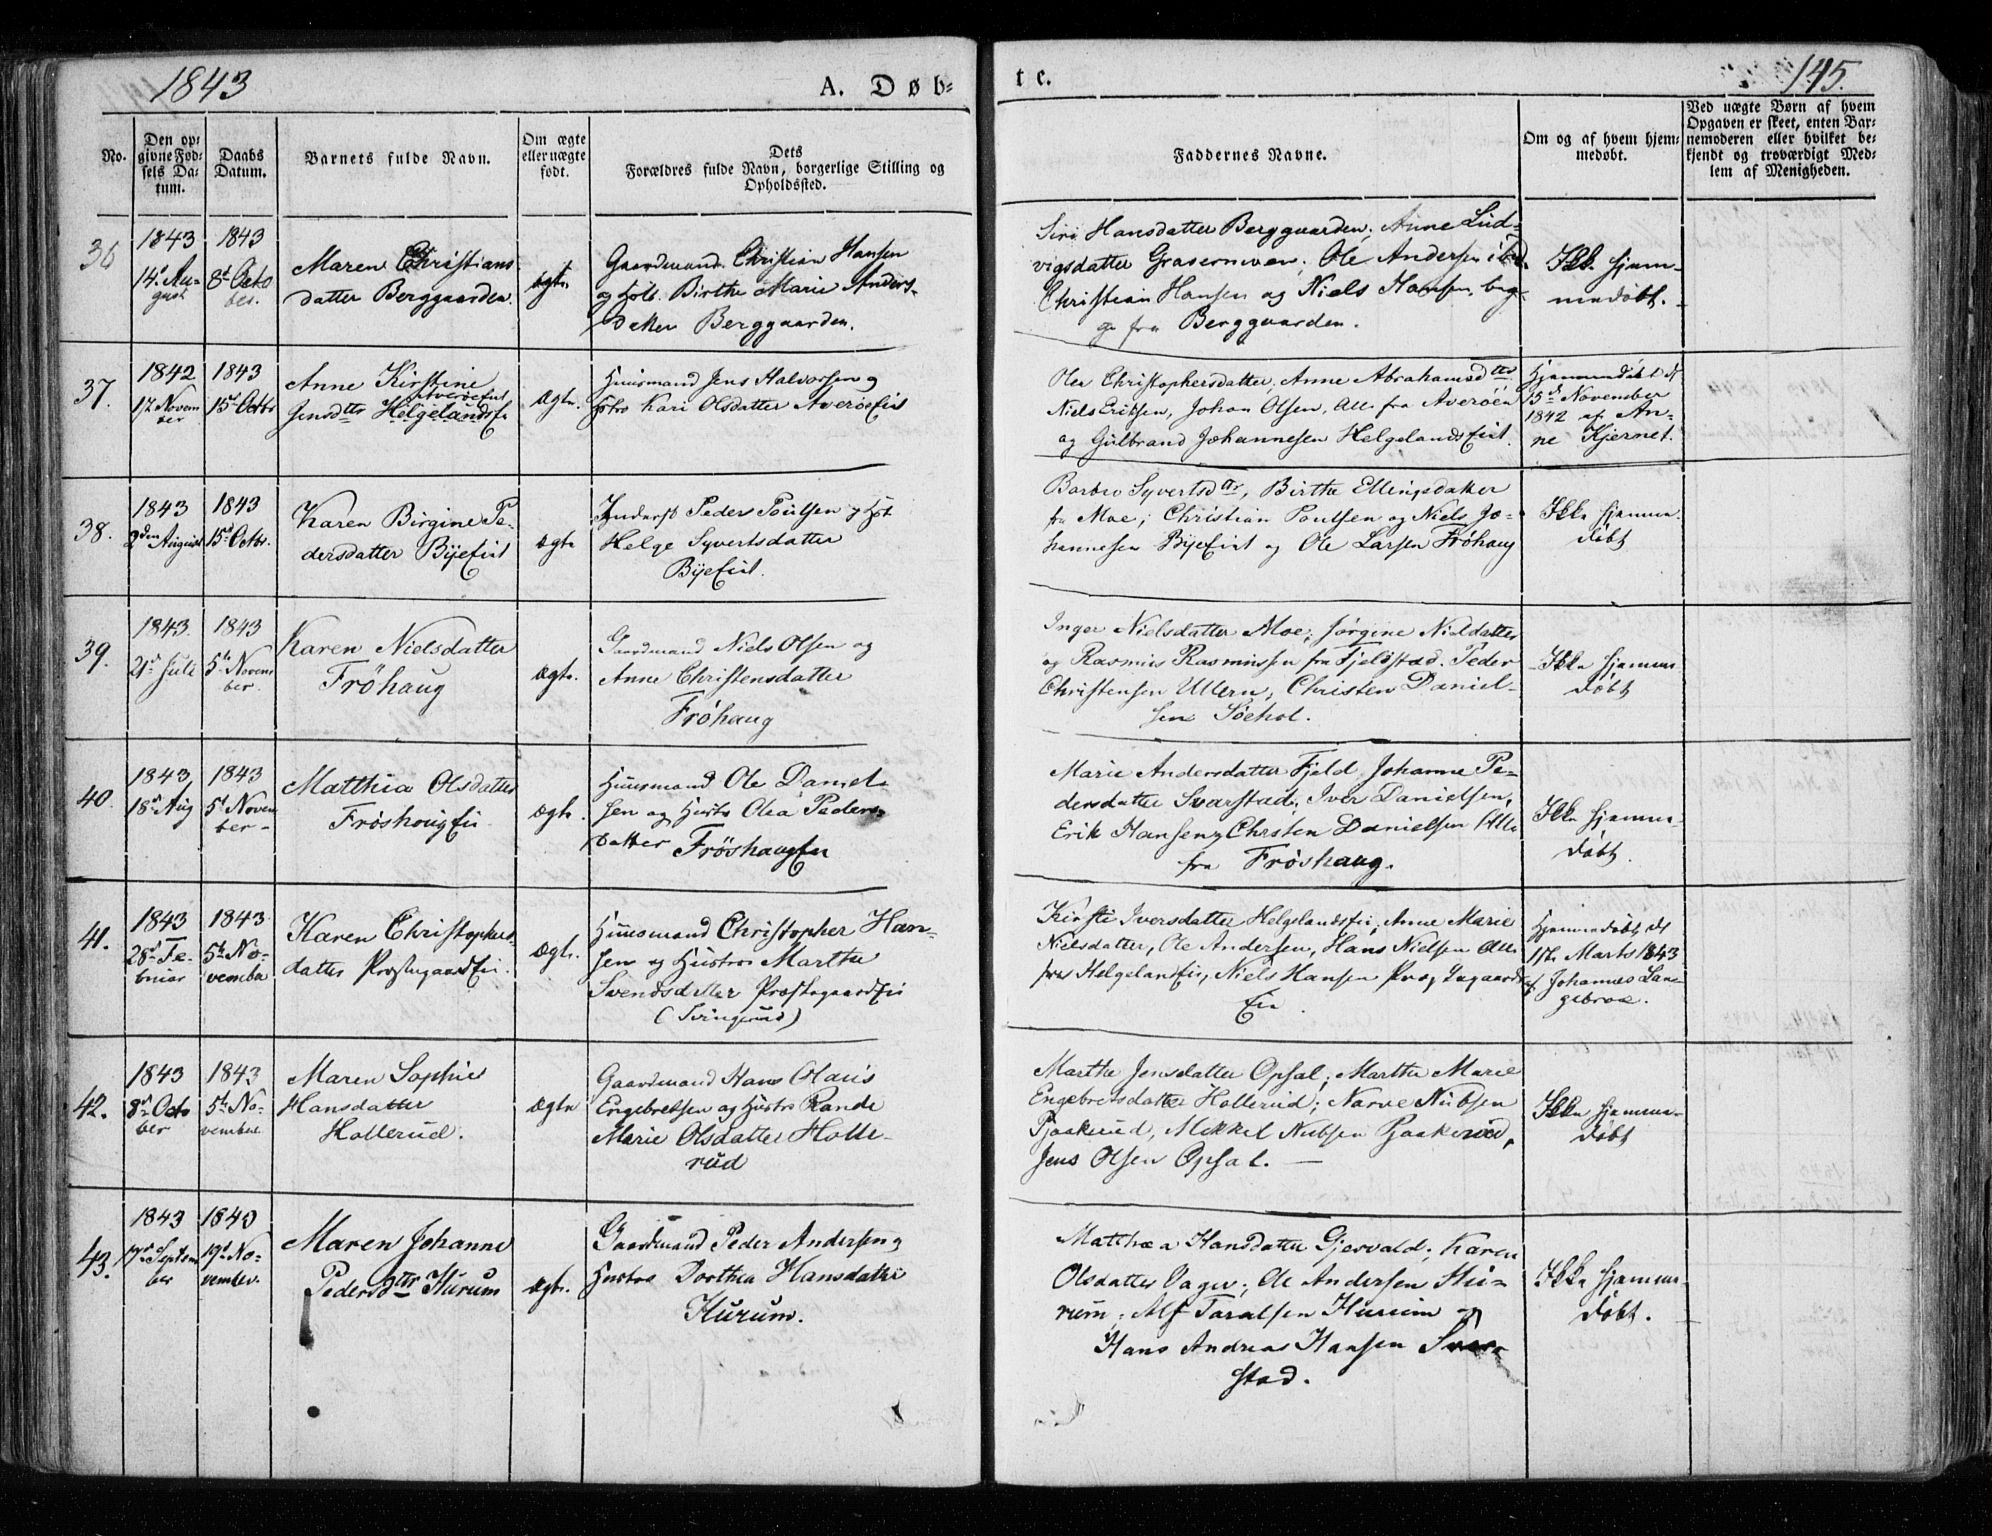 1843
A. Døb-
te.
145.
No.
Den op-
givne Fød-
sels Da-
tum.
Daabs
Datum.
Barnets fulde Navn.
Om ægte
eller uægte
født.
Dets
Forældres fulde Navn, borgerlige Stilling og
Opholdssted.
Faddernes Navne.
Om og af hvem hjem-
medøbt.
Ved uægte Børn af hvem
Opgaven er skeet, enten Bar-
nemoderen eller hvilket be-
kjendt og troværdigt Med-
lem af Menigheden.
36
1843
14de Au-
gust
1843
8d Octo
ber.
Maren Christians
datter Berggaarden
ægte
Gaardmand Christian Hansen
og Hst. Birthe Marie Anders-
datter Berggaarden.
Siri Hansdatter Berggaarden, Anne Lud-
vigsdatter Ole Andersen
Christian Hansen og Niels Hansen, beg-
ge fra Berggaarden.
Ikke hjem-
medøbt.
37.
1842
17 Novem
ber
1843
15d Octbr
Anne Kirstine
Averøeeiet
Jensdtr Helgelandsei
Ægte.
Huusmand Jens Halvorsen og
Hstro Kari Olsdatter Averøeeiet
Olea Christophersdatter, Anne Abrahamsdtr
Niels Eriksen, Johan Olsen, Alle fra Averøen
og Gulbrand Johannesen Helgelandseiet.
Hjemmedøbt d
15d November
1842 af An-
ne Kjernet.
38.
1843
2den August
1843
15d Octbr.
Karen Birgine Pe-
dersdatter Byeeiet
ægte
Inderst Peder Poulsen og Hst
Helge Syvertsdatter
Byeeiet.
Barbro Syvertsdtr, Birthe Ellingsdatter
fra Moe; Christian Poulsen og Niels Jo-
hannesen Byeeiet og Ole Larsen Frøhaug
Ikke hjemme
døbt
39.
1843.
21d Juli
1843
5te Novem
ber.
Karen Nielsdatter
Frøhaug
Ægte.
Gaardmand Niels Olsen og
Anne Christensdatter
Frøhaug
Inger Nielsdatter Moe; Jørgine Nilsdatter
og Rasmus Rasmussen fra Fjeldstad. Peder
Christensen Ullern, Christen Daniel-
sen Søehol.
Ikke hjemme
døbt
40.
1843
18d Aug
1843
5d Novem
ber-
Matthia Olsdatter
Frøshougei
Ægte.
Huusmand Ole Daniel-
sen og Hustro Olea Peders-
datter Frøshaugei
Marie Andersdatter Fjeld, Johanne Pe-
dersdatter Svarstad; Iver Danielsen,
Erik Hansen, Christen Danielsen Alle
fra Frøshaug.
Ikke hjemme-
døbt.
41.
1843
28d Fe-
bruar
1843
5te No-
vember
Karen Christophers-
datter Prestegaardsei.
Ægte.
Huusmand Christopher Han-
sen og Hustro Marthe
Svendsdatter Præstegaardsei
(Svingerud)
Kirsti Iversdatter Helgelandsei, Anne Marie
Nielsdatter, Ole Andersen, Hans Nielsen Alle
fra Helgelandsei, Niels Hansen Præstegaards
Ei.
Hjemmedøbt d
17 Marts 1843
af Johannes Lan-
gebroe.
42.
1843
8d Octo
ber
1843
5te No-
vember
Maren Sophie
Hansdatter
Hollerud.
Ægte
Gaardmand Hans Olaus
Engebretsen og Hustro Rande
Marie Olsdatter Holle-
rud
Marthe Jensdatter Opsal; Marthe Marie
Engebretsdatter Hollerud; Narve Nubsen
Pjaakerud, Mikkel Nubsen Pjaakerud,
Jens Olsen Opsal. —
Ikke hjemme-
døbt
43.
1843
17d Septem
ber
1843
19d No-
vember.
Maren Johanne
Pedersdtr Hurum
Ægte.
Gaardmand Peder Andersen og
Hustro Dorthea Hansdatter
Hurum.
Matthea Hansdatter Gjesvald; Karen
Olsdatter Vager; Ole Andersen Hu-
rum; Alf Taralsen Hurum og
Hans Andreas Hansen Svar-
stad.
Ikke hjemme-
døbt.